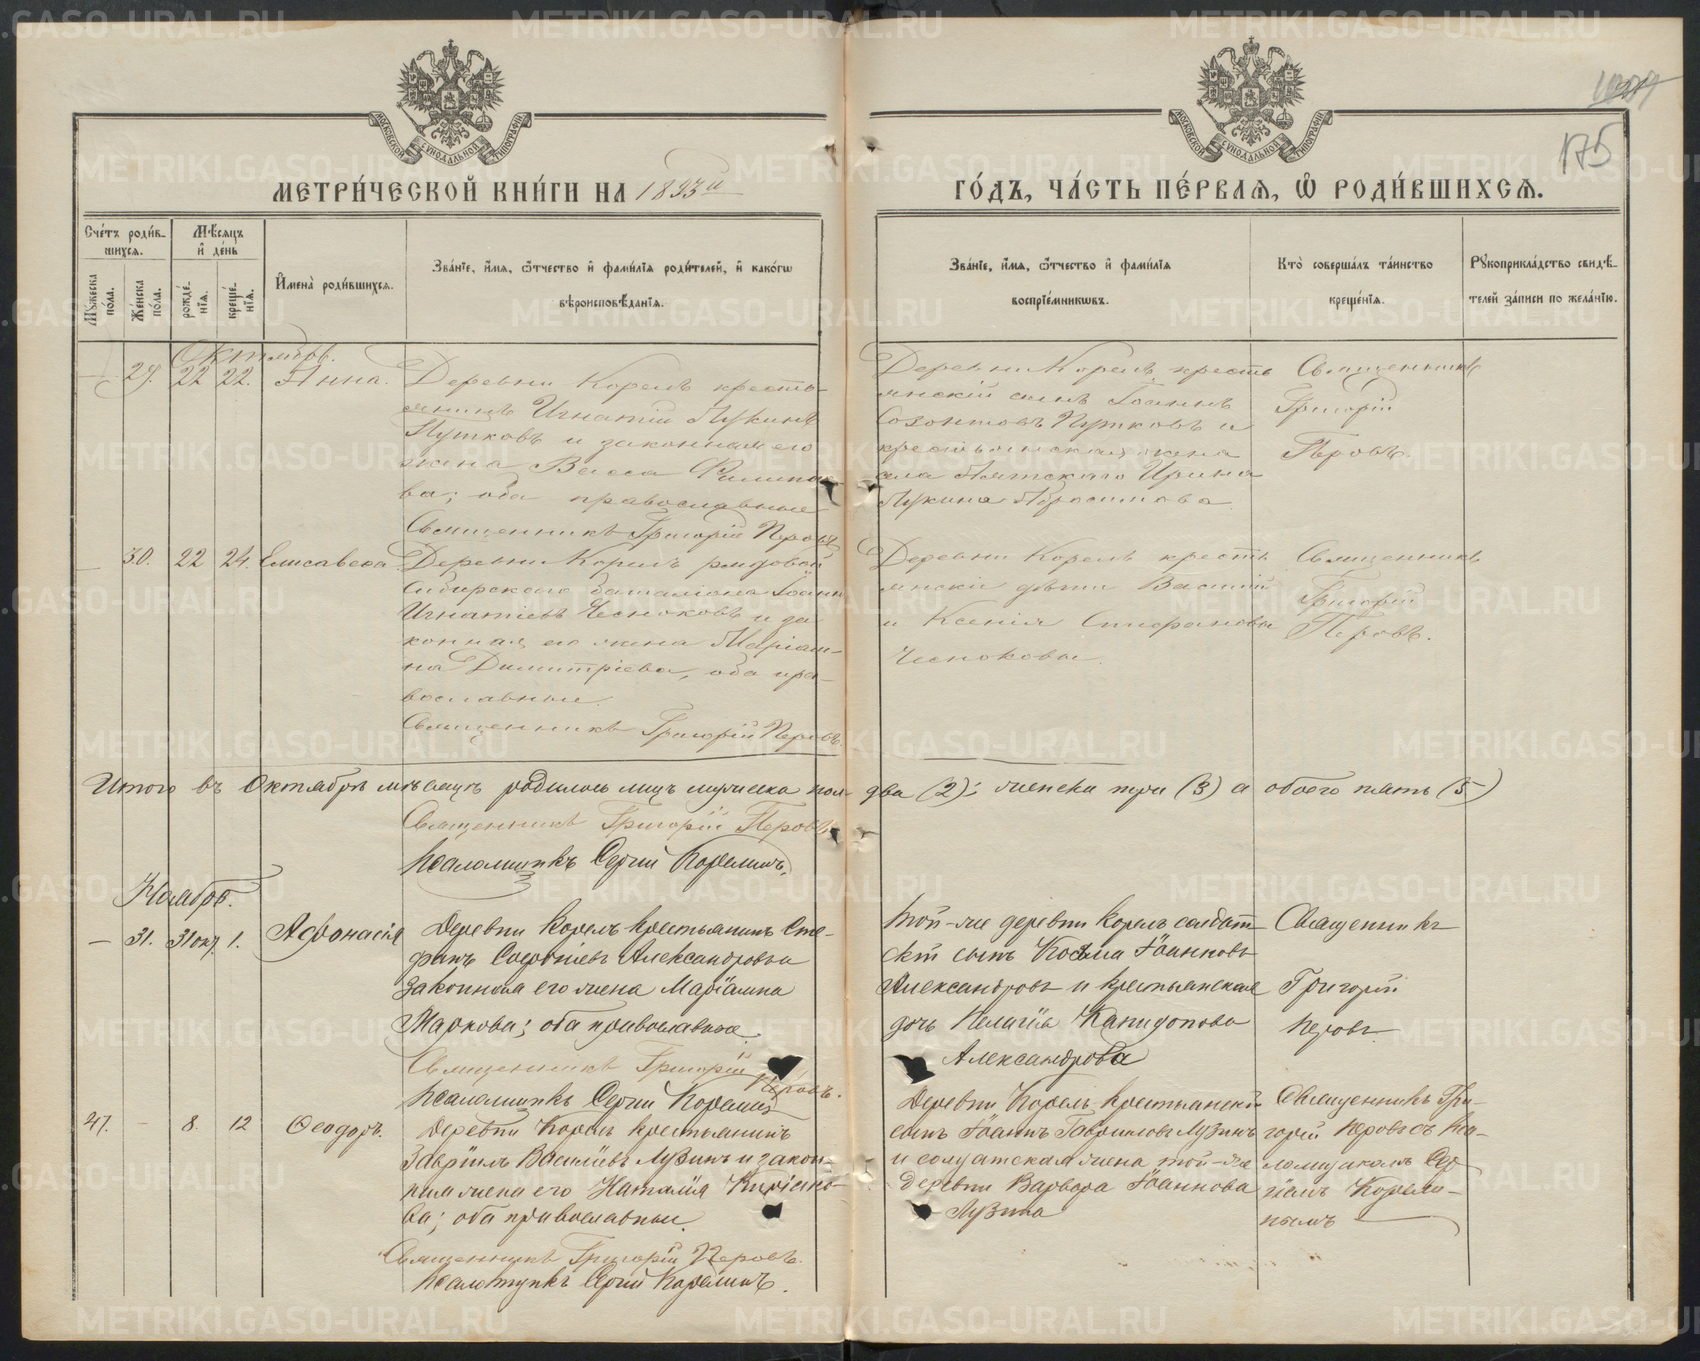 1009
175
МОСКОВСКОЙ СУНОДАЛЬНОЙ ТИПОГРАФІИ
МОСКОВСКОЙ СУНОДАЛЬНОЙ ТИПОГРАФІИ
МЕТРИ́ЧЕСКОЙ КНИ́ГИ НА 1893й
ГО́ДЪ, ЧА́СТЬ ПЕ́РВАѦ, Ѽ РОДИ́ВШИХСѦ.
Сче́тъ роди́в-
шихсѧ.
Мꙋ́жеска по́ла.
Же́нска по́ла.
Мѣ́сѧцъ
и҆ де́нь
рожде́-нїѧ.
креще́-нїѧ.
И҆мена̀ роди́вшихсѧ.
Зва́нїе, и҆́мѧ, ѻ҆́тчество и҆ фами́лїѧ роди́телей, и҆ како́гѡ
вѣроисповѣ́данїѧ.
Зва́нїе, и҆́мѧ, ѻ҆́тчество и҆ фами́лїѧ
воспрїе́мникѡвъ.
Кто̀ соверша́лъ та́инство
креще́нїѧ.
Рꙋкоприкла́дство свидѣ́-
телей за́писи по жела́нїю.
Октябрь.
— 29. 22 22. Анна.
Деревни Корелъ кресть-
янинъ Игнатій Лукинъ
Путковъ и законная его
жена Васса Филипо-
ва; оба православные
Священникъ Григорій Перовъ
Деревни Корелъ кресть
янскій сынъ Іоаннъ
Созонтовъ Путковъ и
крестьянская жена
села Аятскаго Ирина
Лукина
Священникъ
Григорій
Перовъ.
— 30. 22 24. Елисавета
Деревни Корелъ рядовой
Сибирскаго баталіона Іоаннъ
Игнатіевъ Чесноковъ и за
конная его жена Маріам-
на Димитріева, оба пра-
вославные.
Священникъ Григорій Перовъ.
Деревни Корелъ кресть
янскіе дѣти Василій
и Ксенія Стефановы
Чесноковы.
Священникъ
Григорій
Перовъ.
Итого въ Октябрѣ мѣсяцѣ родилось лицъ мужеска пола два (2): женска три (3) а обоего пять (5)
Священникъ Григорій Перовъ.
Псаломщикъ Сергій Корелинъ.
Ноябрь.
— 31. 31 окт. 1. Афонасія
Деревни Корелъ крестьянинъ Сте-
фанъ Савватіевъ Александровъ и
законная его жена Маріамна
Маркова; оба православные.
Священникъ Григорій Перовъ.
Псаломщикъ Сергій Корелинъ
Той-же деревни Корелъ солдат-
скій сынъ Косьма Іоанновъ
Александровъ и крестьянская
дочь Пелагія
Александрова
Священникъ
Григорій
Перовъ
47. — 8. 12 Ѳеодоръ.
Деревни Корелъ крестьянинъ
Гавріилъ Василіевъ Лузинъ и закон-
ная жена его Наталія
ва; оба православные.
Священникъ Григорій Перовъ.
Псаломщикъ Сергій Корелинъ.
Деревни Корелъ крестьянскій
сынъ Іоаннъ Гавриловъ Лузинъ
и солдатская жена той-же
деревни Варвара Іоаннова
Лузина
Священникъ Гри-
горій Перовъ съ пса-
ломщикомъ Сер-
гіемъ Корели-
нымъ
METRIKI.GASO-URAL.RU